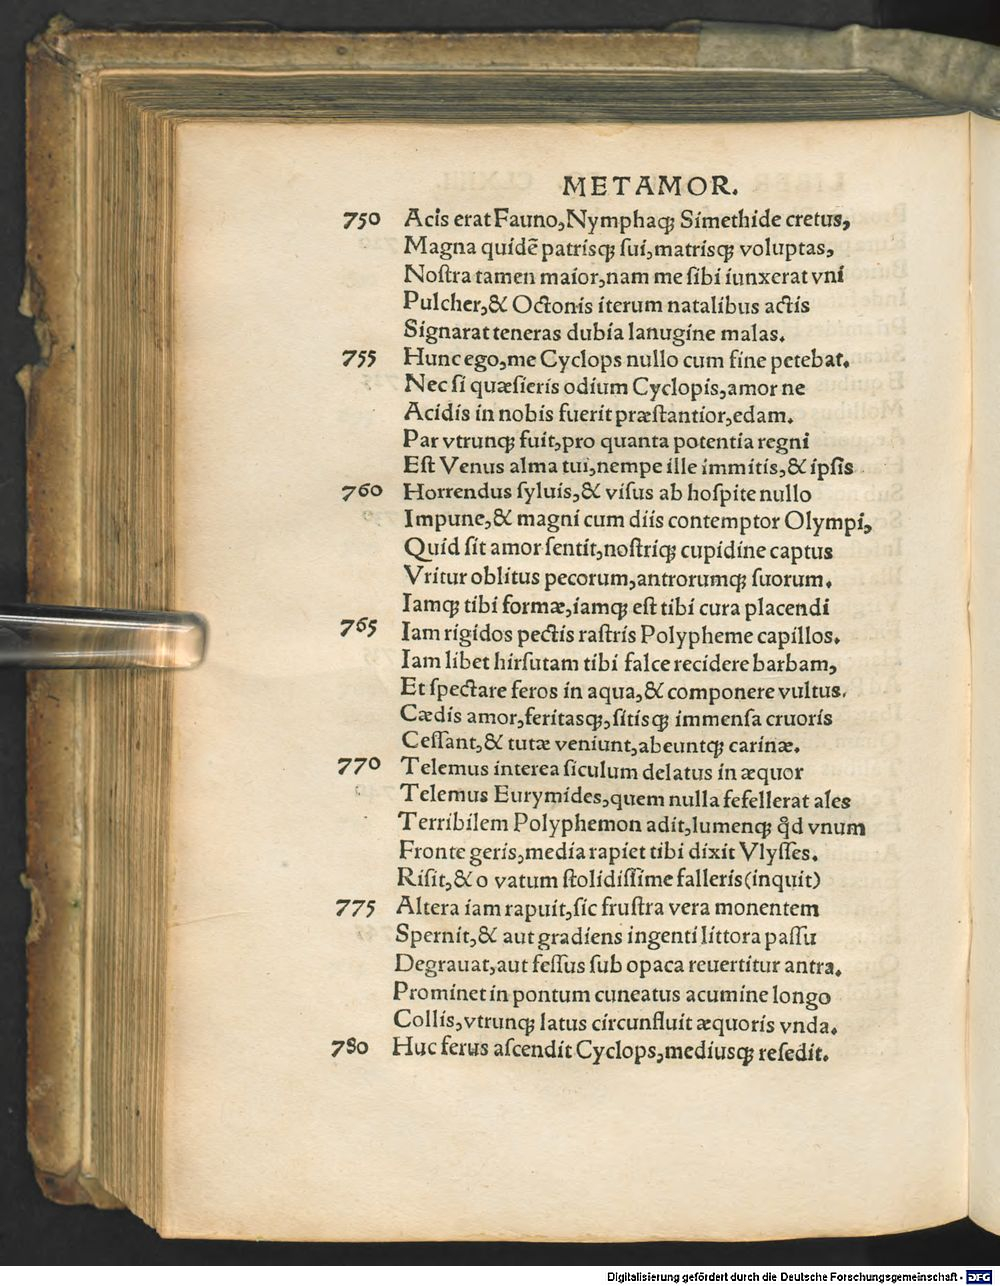 METAMOR.
750 Acis erat Fauno, Nymphaqꝫ Simethide cretus,
Magna quidē patrisqꝫ ſui, matrisqꝫ voluptas,
Noſtra tamen maior, nam me ſibi iunxerat vni
Pulcher, & Octonis iterum natalibus actis
Signarat teneras dubia lanugine malas.
755 Hunc ego, me Cyclops nullo cum fine petebat.
Nec ſi quæſieris odium Cyclopis, amor ne
Acidis in nobis fuerit præſtantior, edam.
Par vtrunqꝫ fuit, pro quanta potentia regni
Eſt Venus alma tui, nempe ille immitis, & ipſis
760 Horrendus ſyluis, & viſus ab hoſpite nullo
Impune, & magni cum diis contemptor Olympi,
Quid ſit amor ſentit, noſtriqꝫ cupidine captus
Vritur oblitus pecorum, antrorumqꝫ ſuorum.
Iamqꝫ tibi formæ, iamqꝫ eſt tibi cura placendi
765 Iam rigidos pectis raſtris Polypheme capillos.
Iam libet hirſutam tibi falce recidere barbam,
Et ſpectare feros in aqua, & componere vultus.
Cædis amor, feritasqꝫ, ſitisqꝫ immenſa cruoris
Ceſſant, & tutæ veniunt, abeuntqꝫ carinæ.
770 Telemus interea ſiculum delatus in æquor
Telemus Eurymides, quem nulla fefellerat ales
Terribilem Polyphemon adit, lumenqꝫ qd̄ vnum
Fronte geris, media rapiet tibi dixit Vlyſſes.
Riſit, & o vatum ſtolidiſſime falleris (inquit)
775 Altera iam rapuit, ſic fruſtra vera monentem
Spernit, & aut gradiens ingenti littora paſſu
Degrauat, aut feſſus ſub opaca reuertitur antra.
Prominet in pontum cuneatus acumine longo
Collis, vtrunqꝫ latus circunfluit æquoris vnda.
780 Huc ferus aſcendit Cyclops, mediusqꝫ reſedit.
Digitalisierung gefördert durch die Deutsche Forschungsgemeinschaft - DFG